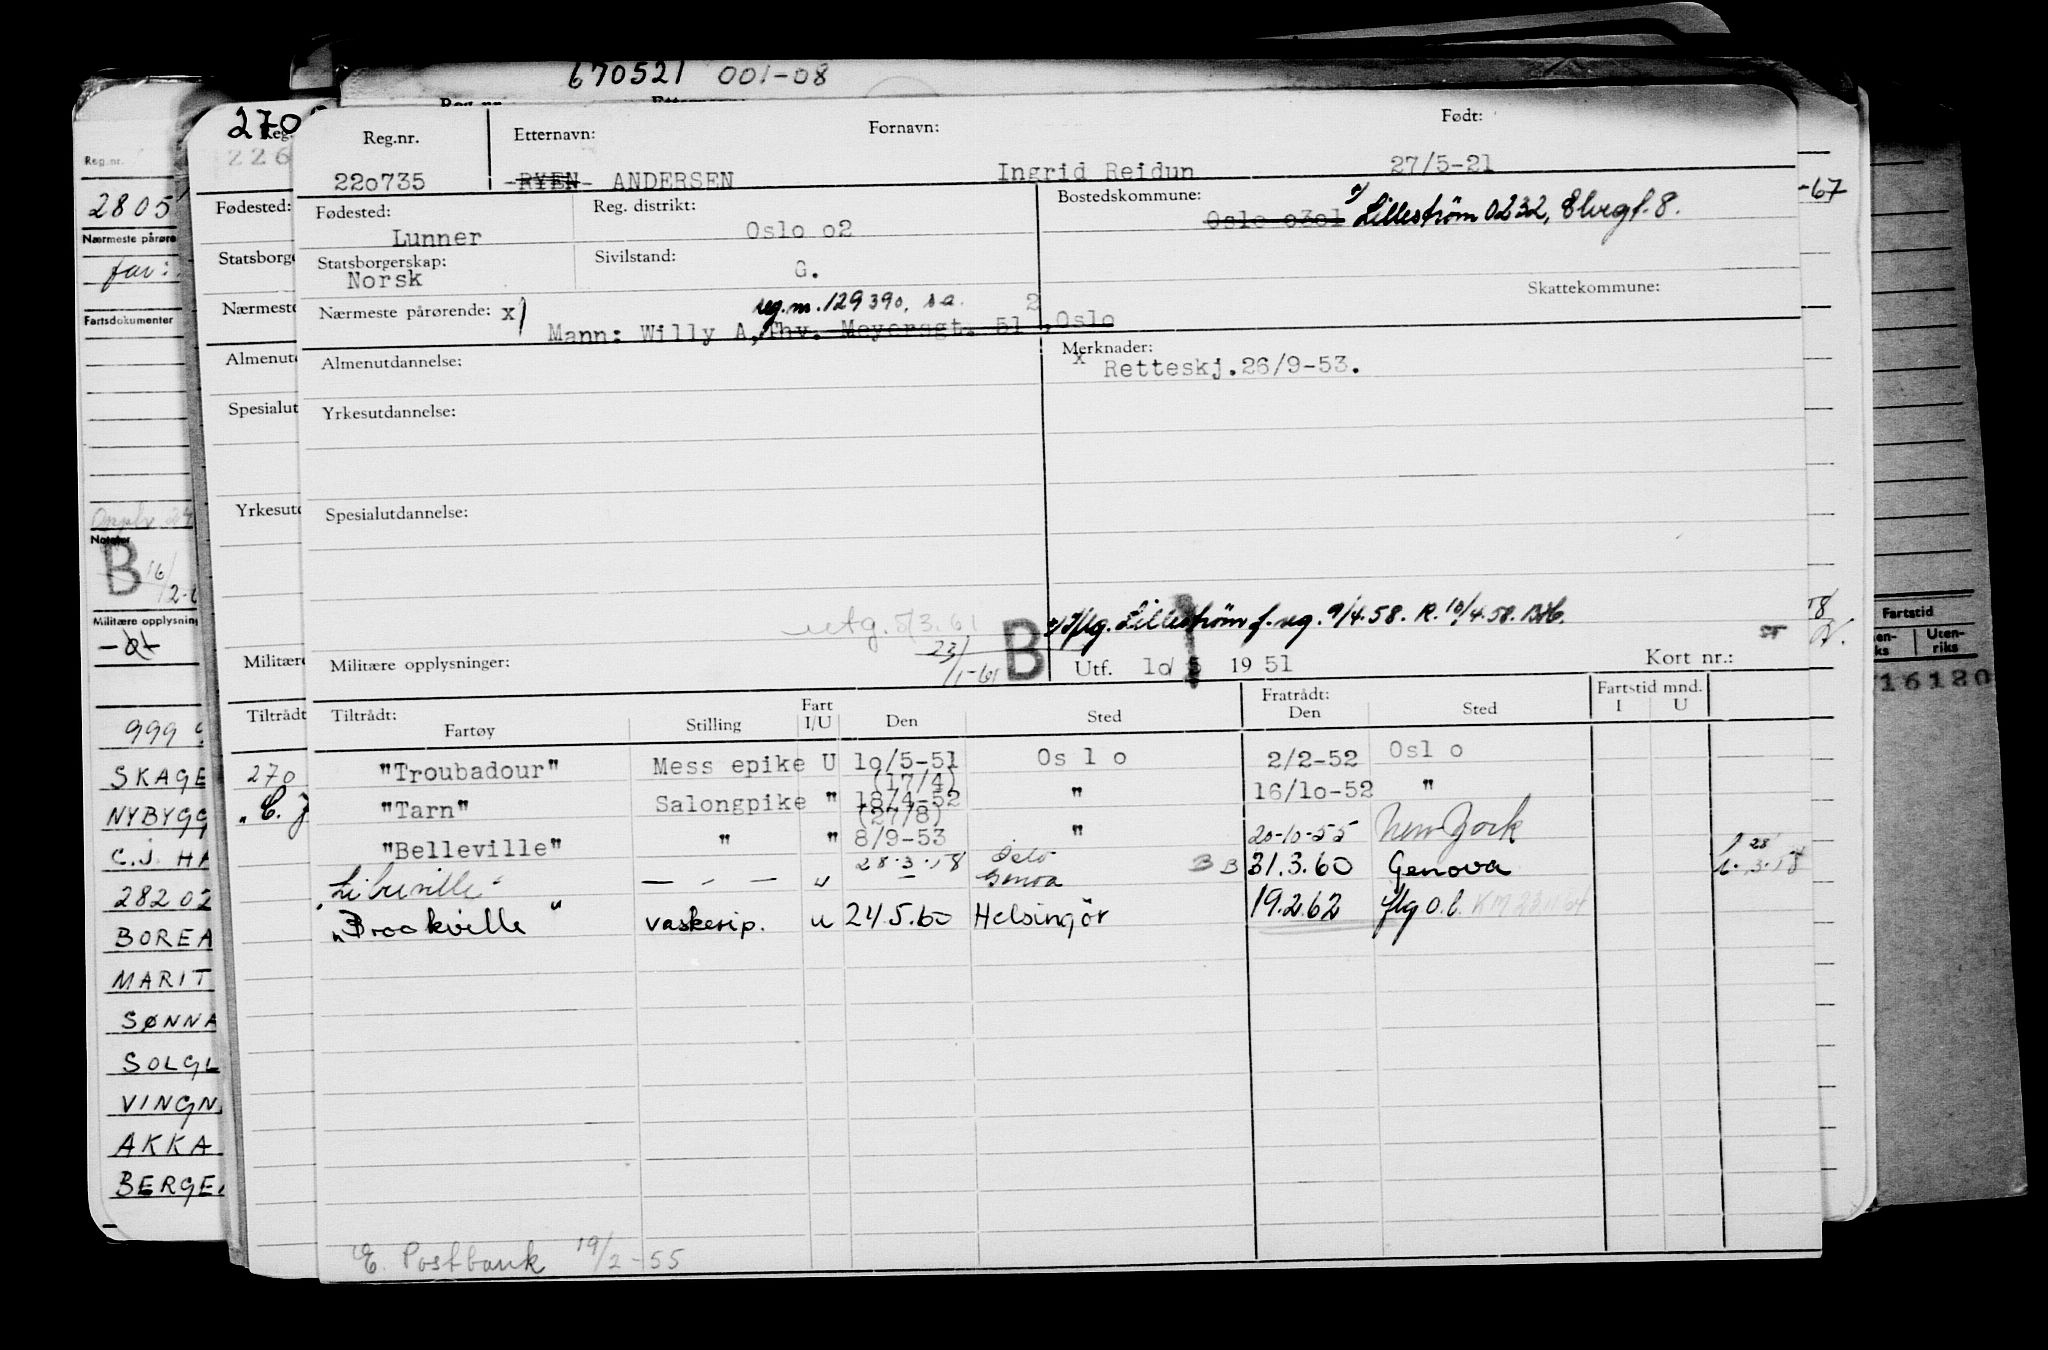 670521 001-08
270
Reg.nr. Etternavn: Fornavn: Født:
220735 -RYEN- ANDERSEN Ingrid Reidun 27/5-21
-67
Fødested: Reg. distrikt: Bostedskommune:
Lunner Oslo o2 Oslo o3o1 Lillestrøm 0232, Elvegt. 8.
Statsborgerskap: Sivilstand:
Norsk G.
Skattekommune:
Nærmeste pårørende: x) reg.nr. 129390, s.a. 2
Mann: Willy A, Thv. Meyersgt. 51, Oslo
Almenutdannelse: Merknader:
x Retteskj.26/9-53.
Yrkesutdannelse:
Spesialutdannelse:
utg. 8/3.61
Iflg. Lillestrøm f. reg. 9/4.58. R. 10/4.58.
23/1-61 B
Militære opplysninger: Utf. 1o/5 19 51 Kort nr.:
Tiltrådt: Fart Fratrådt: Fartstid mnd.
Fartøy Stilling I/U Den Sted Den Sted I U
"Troubadour" Mess epike U 1o/5-51 Os l o 2/2-52 Osl o
(17/4)
"Tarn" Salongpike " 18/4-52 " 16/1o-52 "
(27/8)
"Belleville" " " 8/9-53 " 20-10-55 New York
28.3.58 Oslo
"Libreville" — - — u — Genoa B B 31.3.60 Genova
"Brookville" vaskerip. u 24.5.60 Helsingör 19.2.62 flg o.l. KM 23/1 64
E. Postbank 19/2-55
Reg.nr.
2805
Nærmeste pårøre
far:
Fartsdokumenter
Notater
B 16/2-6
Militære opplysning
999
SKAGE
NYBYGG
C.J. HA
28202
BOREA
MARIT
SØNNA
SOLGL
VINGN
AKKA
BERGE
226
Fødested:
Statsborge
Nærmeste
Almenut
Spesialut
Yrkesutd
Militære
Tiltrådt
270
"C. J
Fartstid
en-ks Uten-riks
16120